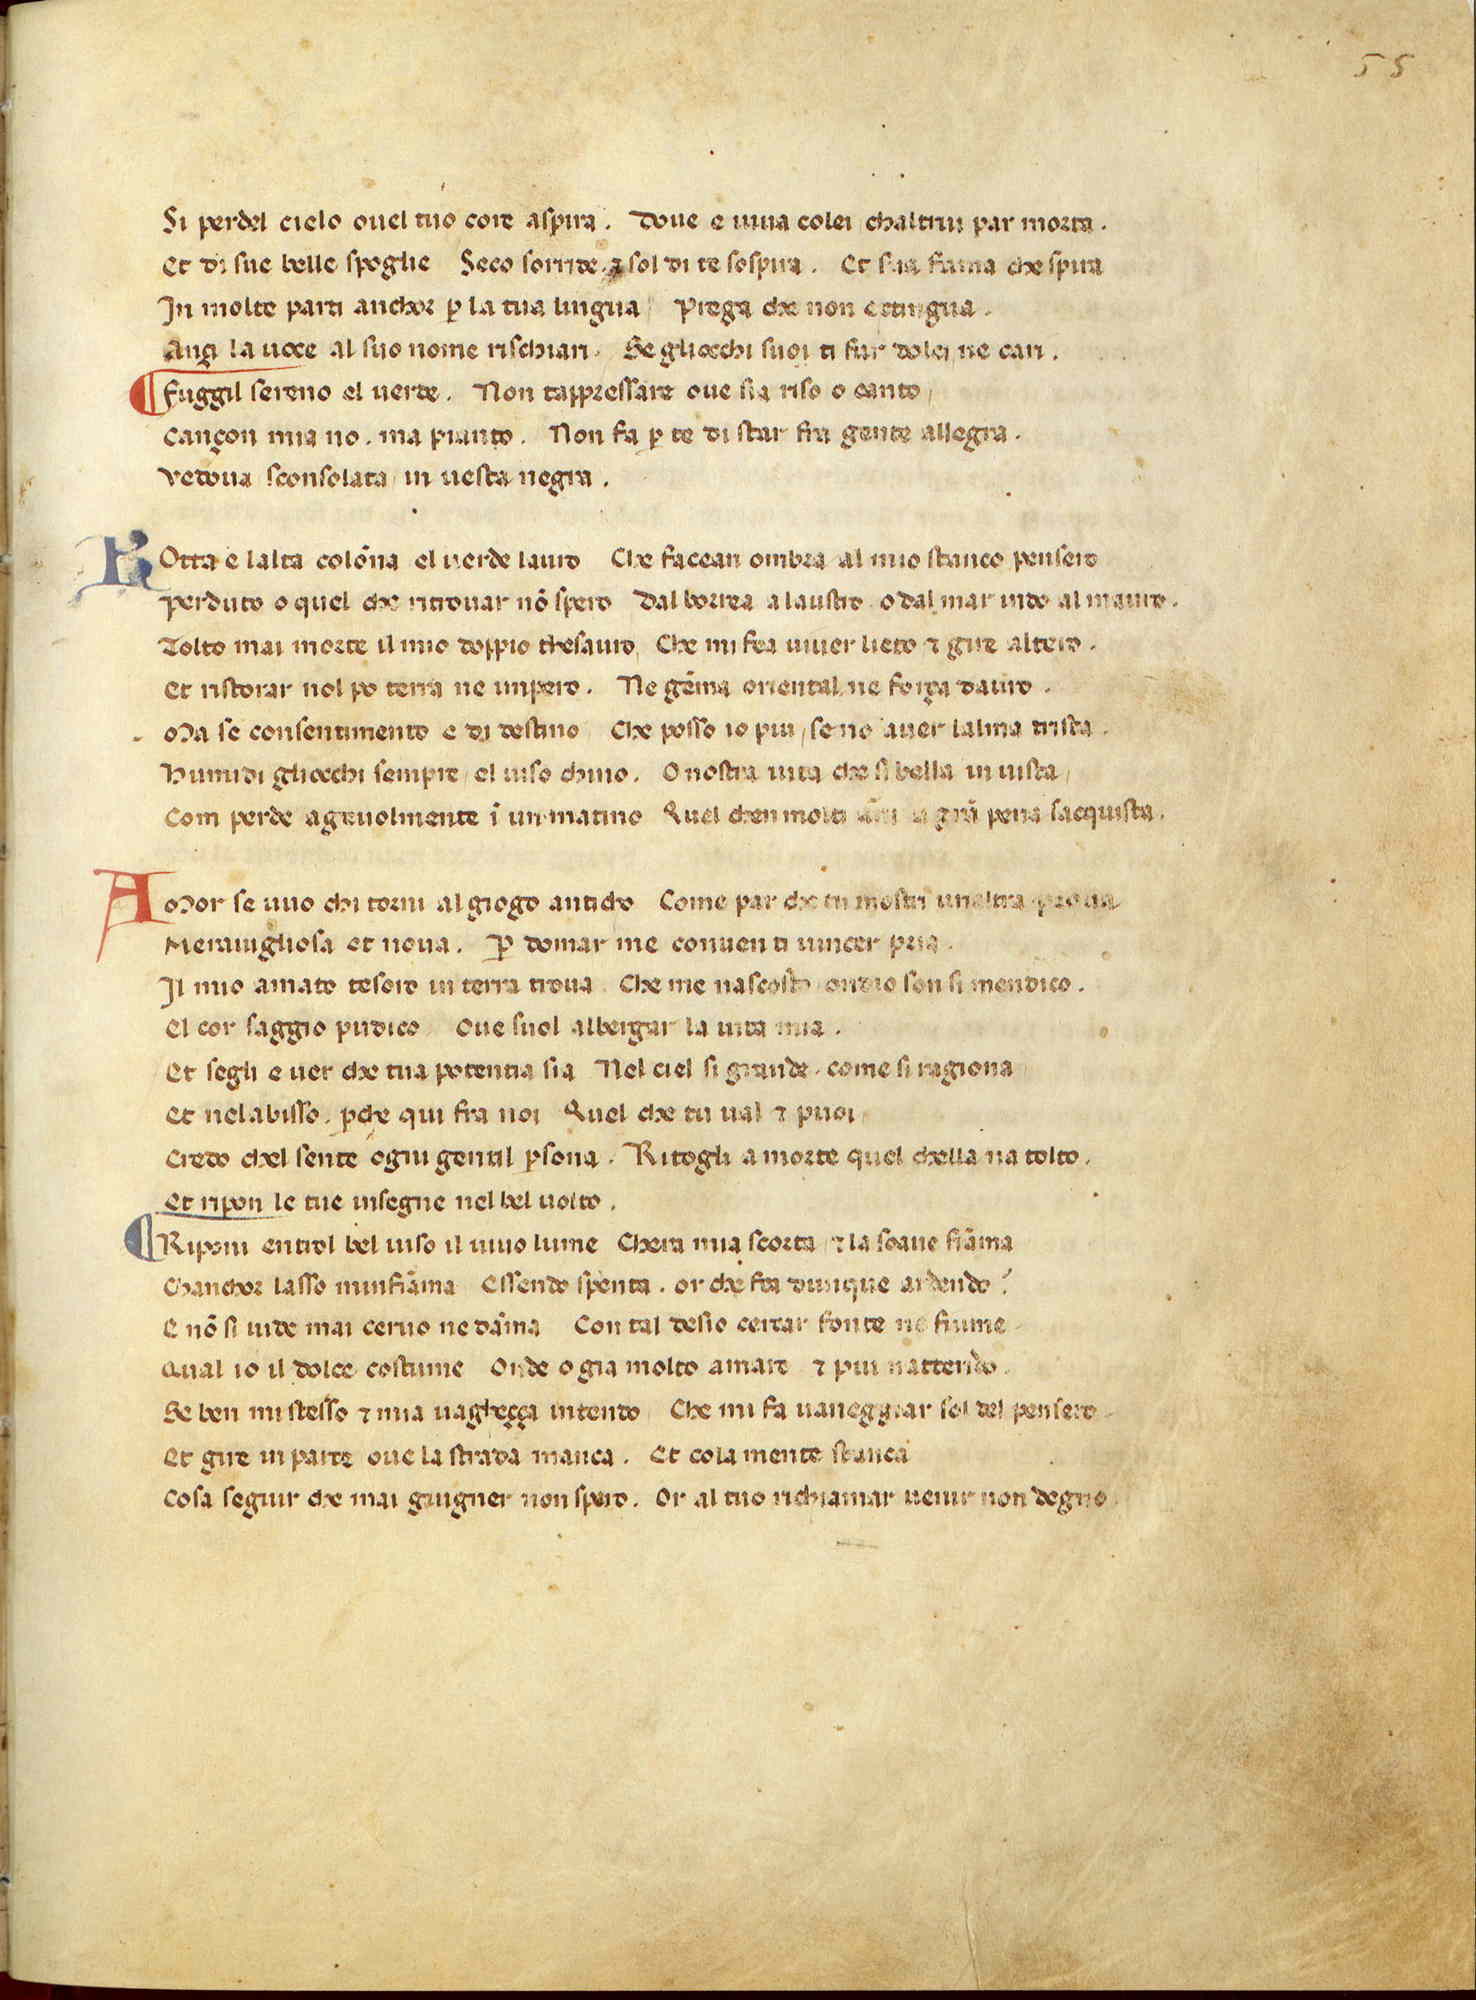 55
Si perdel cielo ouel tuo core aspira. Doue e uiua colei chaltrui par morta.
Et di sue belle spoglie Seco sorride, ⁊ sol di te sospira. Et sua fama che spira
In molte parti anchor ꝑ la tua lingua Prega che non extingua.
Anzi la uoce al suo nome rischiari. Se gliocchi suoi ti fur dolci, ne cari.
Fuggil sereno el uerde. Non tappressare oue sia riso o canto,
Cançon mia no. ma pianto. Non fa ꝑ te di star fra gente allegra.
Vedoua sconsolata, in uesta negra.
ROtta e lalta colōna el uerde lauro Che facean ombra al mio stanco pensero
Perduto o quel che ritrouar nō spero Dal borrea a laustro, o dal mar indo al mauro.
Tolto mai morte il mio doppio thesauro, Che mi fea uiuer lieto ⁊ gire altero.
Et ristorar nol po terra ne impero. Ne gēma oriental, ne força dauro.
Ma se consentimento e di destino Che posso io piu, se no auer lalma trista.
Humidi gliocchi sempre, el uiso chino. O nostra uita che si bella in uista,
Com perde ageuolmente ī un matino Quel chen molti āni a grā pena sacquista.
AMor se uuo chi torni al giogo anticho Come par che tu mostri unaltra proua
Merauigliosa et noua. ꝑ domar me conuenti uincer pria.
Il mio amato tesoro in terra troua Che me nascosto, ondio son si mendico.
El cor saggio pudico Oue suol albergar la uita mia.
Et segli e uer che tua potentia sia Nel ciel si grande, come si ragiona
Et nel abisso, ꝑche qui fra noi Quel che tu ual ⁊ puoi,
Credo chel sente ogni gentil ꝑsona. Ritogli a morte quel chella na tolto.
Et ripon le tue insegne nel bel uolto.
Riponi entrol bel uiso il uiuo lume Chera mia scorta, ⁊ la soaue fiāma
Chanchor lasso minfiāma Essendo spenta. or che fea dunque ardendo?
E nō si uide mai ceruo ne dāma Con tal desio cercar fonte ne fiume
Qual io il dolce costume Onde o gia molto amaro ⁊ piu nattendo.
Se ben mi stesso ⁊ mia uagheçça intendo Che mi fa uaneggiar sol del pensero
Et gire in parte oue la strada manca. Et cola mente stanca
Cosa seguir che mai giugner non spero. Or al tuo richiamar uenir non degno